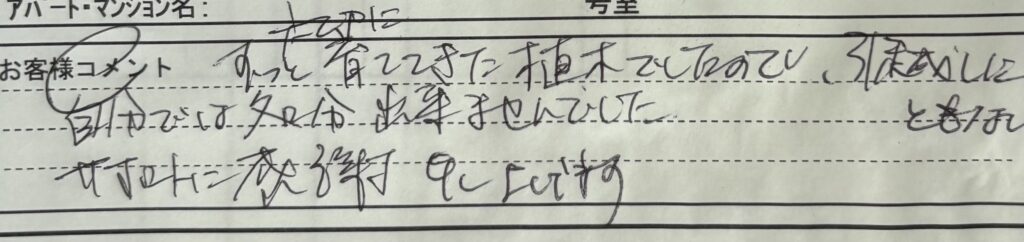 アパート・マンション名: 号室
お客様コメント ずっと 大切に 育ててきた 植木でしたので、引越しに
ともない
自分では 処分 出来ませんでした
サポートに 感謝 申し上げます